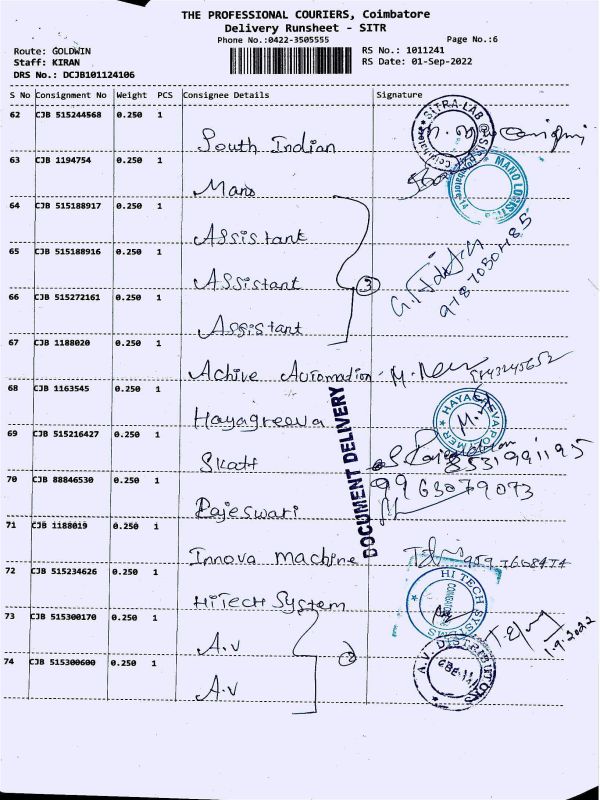 THE PROFESSIONAL COURIERS, Coimbatore
Delivery Runsheet - SITR
Phone No.:0422-3505555 Page No.:6
Route: GOLDWIN RS No.: 1011241
Staff: KIRAN RS Date: 01-Sep-2022
DRS No.: DCJB101124106
S No Consignment No Weight PCS Consignee Details Signature
62 CJB 515244568 0.250 1 South Indian
SITRA-LAB
63 CJB 1194754 0.250 1 Mano
MANO LOGISTI
64 CJB 515188917 0.250 1 Assistant
65 CJB 515188916 0.250 1 Assistant 3
9787030485
66 CJB 515272161 0.250 1 Assistant
67 CJB 1188020 0.250 1 Achive Automation
68 CJB 1163545 0.250 1 Hayagreeva
69 CJB 515216427 0.250 1 Skaft
8531991195
70 CJB 88846530 0.250 1 Rajeswari 9963079073
DOCUMENT DELIVERY
71 CJB 1188019 0.250 1 Innova machine
72 CJB 515234626 0.250 1 HiTech System
HI TECH SYSTEMS
73 CJB 515300170 0.250 1 A.V
1.9.2022
74 CJB 515300600 0.250 1 A.V 2
A.V. DISTRIBUTORS
CBE-14